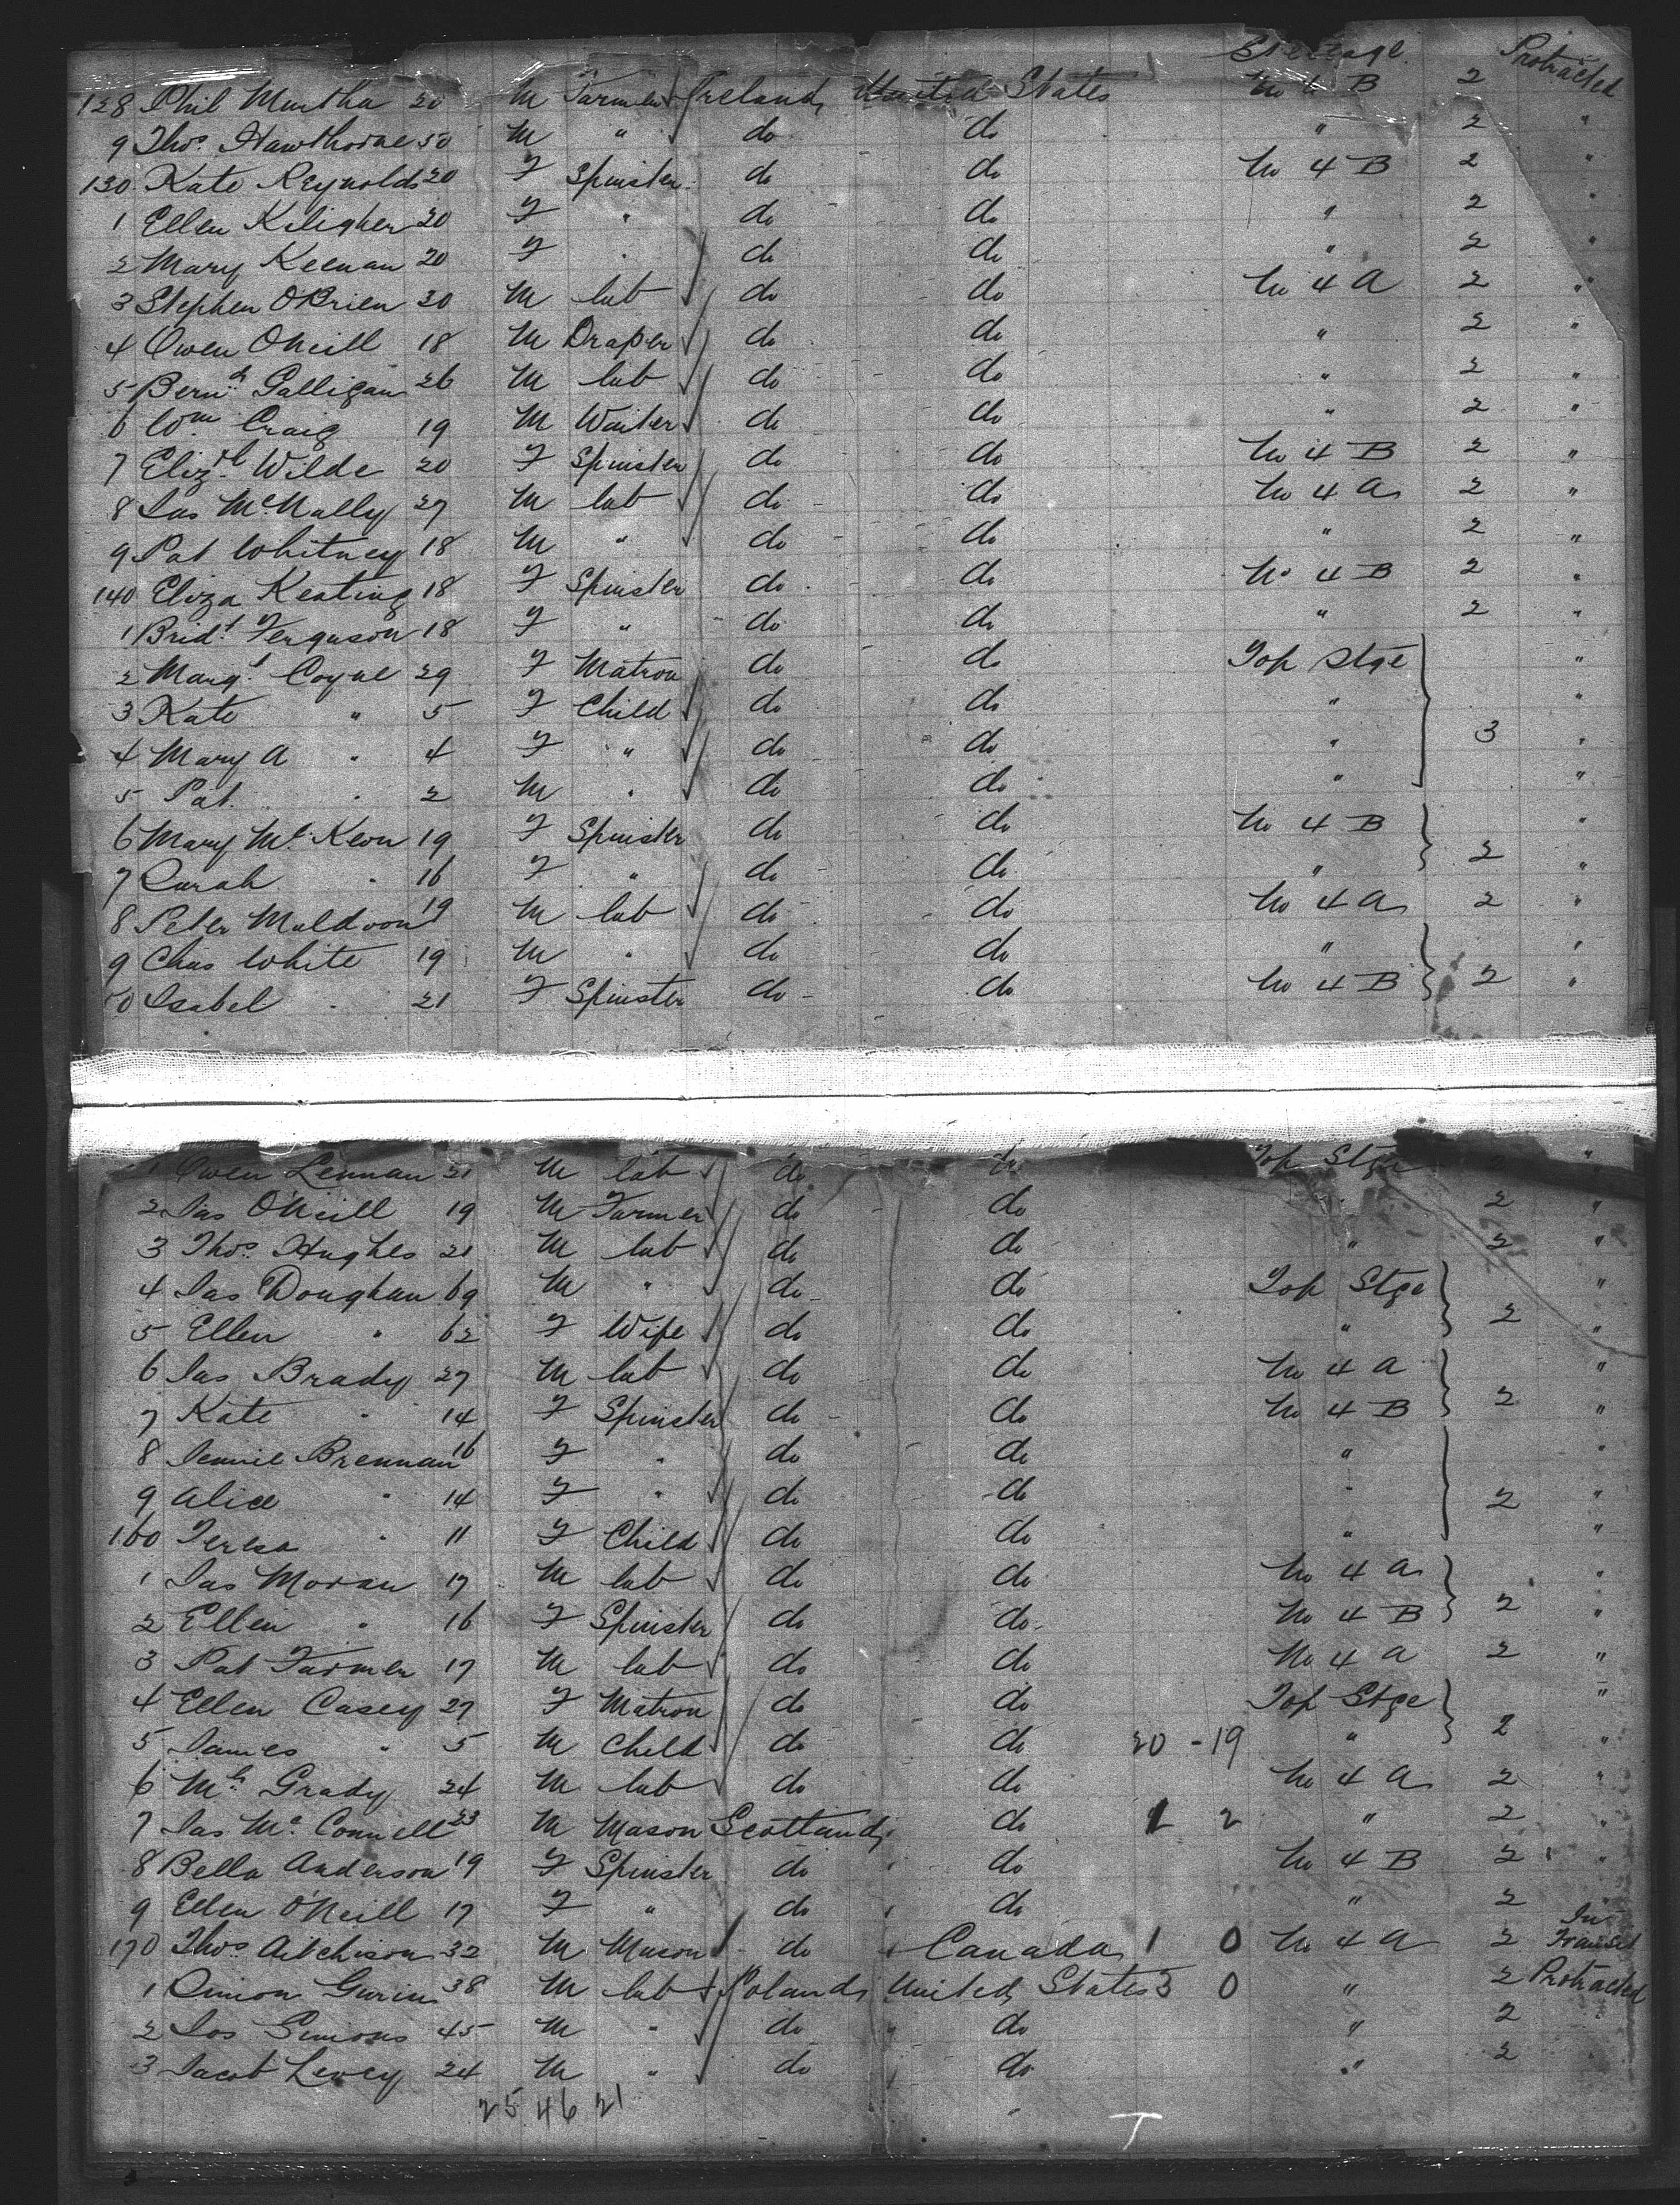 Steerage
128 Phil Murtha 20 M Farmer Ireland United States No 4 B 2 Protracted
9 Thos. Hawthorne 50 M " do do " 2 "
130 Kate Reynolds 20 F Spinster do do No 4 B 2 "
1 Ellen Keligher 20 F " do do " 2 "
2 Mary Keenan 20 F " do do " 2 "
3 Stephen O'Brien 20 M lab do do No 4 A 2 "
4 Owen O'Neill 18 M Draper do do " 2 "
5 Bernd Galligan 26 M lab do do " 2 "
6 Wm Craig 19 M Waiter do do " 2 "
7 Elizth Wilde 20 F Spinster do do No 4 B 2 "
8 Jas McNally 27 M lab do do No 4 A 2 "
9 Pat Whitney 18 M " do do " 2 "
140 Eliza Keating 18 F Spinster do do No 4 B 2 "
1 Bridt Ferguson 18 F " do do " 2 "
2 Margt Coyne 29 F Matron do do Top Stge "
3 Kate " 5 F Child do do " "
4 Mary A " 4 F " do do " 3 "
5 Pat " 2 M " do do " "
6 Mary McKeon 19 F Spinster do do No 4 B "
7 Sarah " 16 F " do do " 2 "
8 Peter Muldoon 19 M lab do do No 4 A 2 "
9 Chas White 19 M " do do " "
0 Isabel " 21 F Spinster do do No 4 B 2 "
1 Owen Lennan 21 M lab do do Top Stge "
2 Jas O'Neill 19 M Farmer do do " 2 "
3 Thos. Hughes 21 M lab do do " 2 "
4 Jas Doughan 69 M " do do Top Stge "
5 Ellen " 62 F Wife do do " 2 "
6 Jas Brady 27 M lab do do No 4 A "
7 Kate " 14 F Spinster do do No 4 B 2 "
8 Jennie Brennan 16 F " do do " "
9 Alice " 14 F " do do " 2 "
160 Teresa " 11 F Child do do " "
1 Jas Moran 17 M lab do do No 4 A "
2 Ellen " 16 F Spinster do do No 4 B 2 "
3 Pat Farmer 17 M lab do do No 4 A 2 "
4 Ellen Casey 27 F Matron do do Top Stge "
5 James " 5 M Child do do 20 - 19 " 2 "
6 Ml Grady 24 M lab do do No 4 A 2 "
7 Jas McConnell 23 M Mason Scotland do 1 2 " 2 "
8 Bella Anderson 19 F Spinster do do No 4 B 2 "
9 Ellen O'Neill 17 F " do do " 2 "
170 Thos. Aitchison 32 M Mason do Canada 1 0 No 4 A 2 In Transit
1 Simon Gurin 38 M lab Poland United States 3 0 " 2 Protracted
2 Jos Simons 45 M " do do " 2
3 Jacob Levey 24 M " do do " 2
25 46 21
T